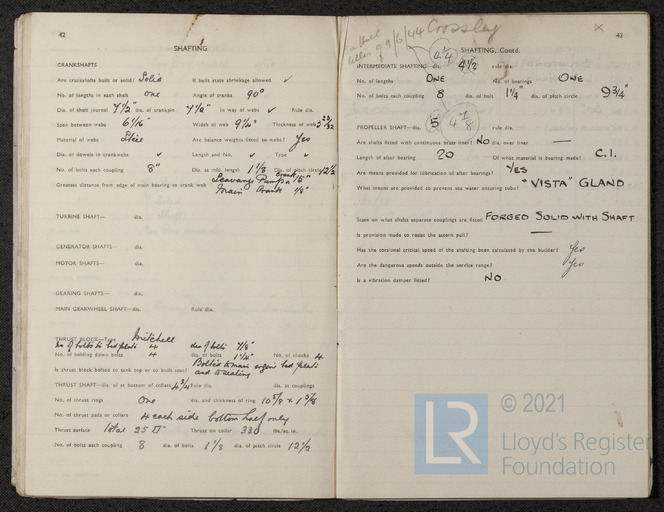 42
SHAFTING
CRANKSHAFTS
Are crankshafts built or solid? Solid If built state shrinkage allowed ✓
No. of lengths in each shaft one Angle of cranks 90°
Dia. of shaft journal 7½" dia. of crankpin 7½" in way of webs ✓ Rule dia.
Span between webs 6 1/16" Width of web 9¼" Thickness of web 3 23/32
Material of webs Steel Are balance weights fitted to webs? Yes
Dia. of dowels in crankwebs ✓ Length and No. ✓ Type ✓
No. of bolts each coupling 8" Dia. at mid. length 1⅛ Dia. of pitch circle 12½
Greatest distance from edge of main bearing to crank web Scavenge Pump Crank
Main Crank
TURBINE SHAFT— dia.
GENERATOR SHAFTS— dia.
MOTOR SHAFTS— dia.
GEARING SHAFTS— dia.
MAIN GEARWHEEL SHAFT—dia. Rule dia.
THRUST BLOCK—Type Mitchell
No. of bolts to bed plate 4 dia. of bolts 7/8"
No. of holding down bolts 4 dia. of bolts 1¼" No. of chocks 4
Is thrust block bolted to tank top or to built seat? Bolted to main engine bed plate
and to seating
THRUST SHAFT—dia. of at bottom of collars 4¾ Rule dia. dia. at couplings
No. of thrust rings One dia. and thickness of ring 10⅝ × 1⅝
No. of thrust pads or collars 4 each side bottom half only
Thrust surface Total 25 □" Thrust on collar 330 lbs./sq. in.
No. of bolts each coupling 8 dia. of bolts 1⅛ dia. of pitch circle 12½
43
Crossley
9/6/44
4¼
SHAFTING, Contd.
INTERMEDIATE SHAFTING—dia. 4½ rule dia.
No. of lengths ONE No. of bearings ONE
No. of bolts each coupling 8 dia. of bolt 1¼" dia. of pitch circle 9¾"
PROPELLER SHAFT—dia. 5 4⅞ rule dia.
Are shafts fitted with continuous brass liner? NO dia. over liner —
Length of after bearing 20 Of what material is bearing made? C.I.
Are means provided for lubrication of after bearings? YES
What means are provided to prevent sea water entering tube? "VISTA" GLAND
State on what shafts separate couplings are fitted FORGED SOLID WITH SHAFT
Is provision made to resist the astern pull? —
Has the torsional critical speed of the shafting been calculated by the builder? Yes
Are the dangerous speeds outside the service range? Yes
Is a vibration damper fitted? NO
LR
© 2021
Lloyd's Register
Foundation